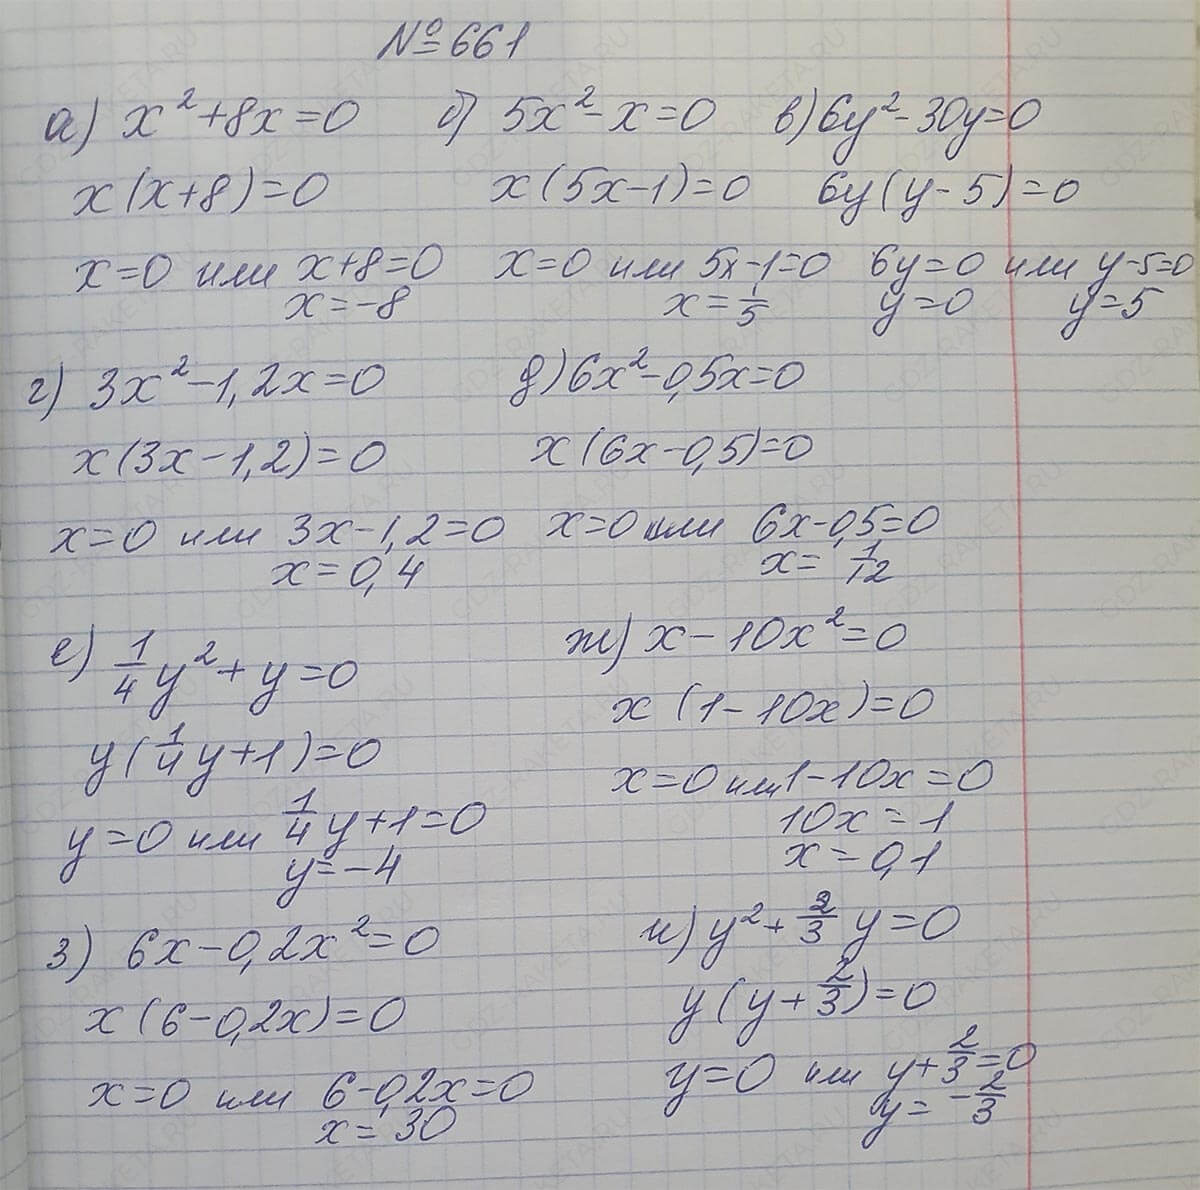 №661
а) x²+8x=0 б) 5x²-x=0 в) 6y²-30y=0
x(x+8)=0 x(5x-1)=0 6y(y-5)=0
x=0 или x+8=0 x=0 или 5x-1=0 6y=0 или y-5=0
x=-8 x=1/5 y=0 y=5
г) 3x²-1,2x=0 д) 6x²-0,5x=0
x(3x-1,2)=0 x(6x-0,5)=0
x=0 или 3x-1,2=0 x=0 или 6x-0,5=0
x=0,4 x=1/12
е) 1/4y²+y=0 ж) x-10x²=0
y(1/4y+1)=0 x(1-10x)=0
y=0 или 1/4y+1=0 x=0 или 1-10x=0
y=-4 10x=1
x=0,1
з) 6x-0,2x²=0 и) y²+2/3y=0
x(6-0,2x)=0 y(y+2/3)=0
x=0 или 6-0,2x=0 y=0 или y+2/3=0
x=30 y=-2/3
GDZ-RAKETA.RU